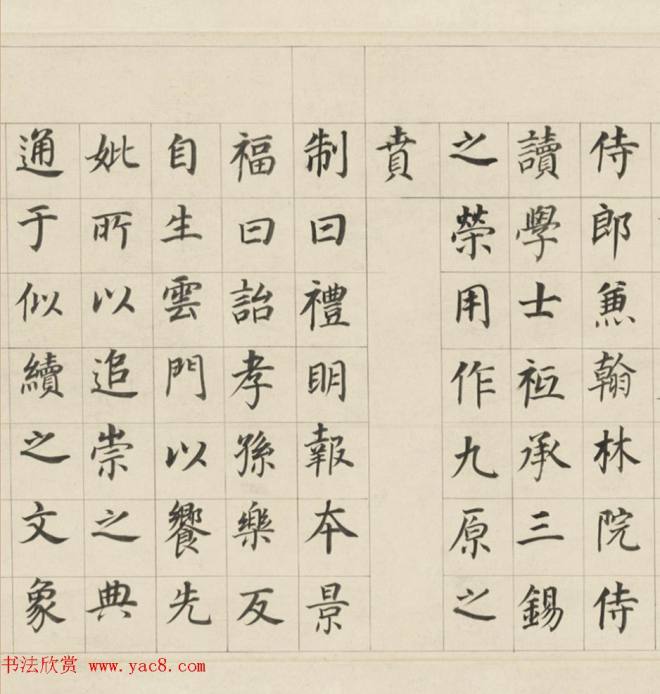 侍郎兼翰林院侍
讀學士祗承三錫
之榮用作九原之
賁
制曰禮明報本景
福曰詒孝孫樂反
自生雲門以饗先
妣所以追崇之典
通于似續之文象
书法欣赏 www.yac8.com